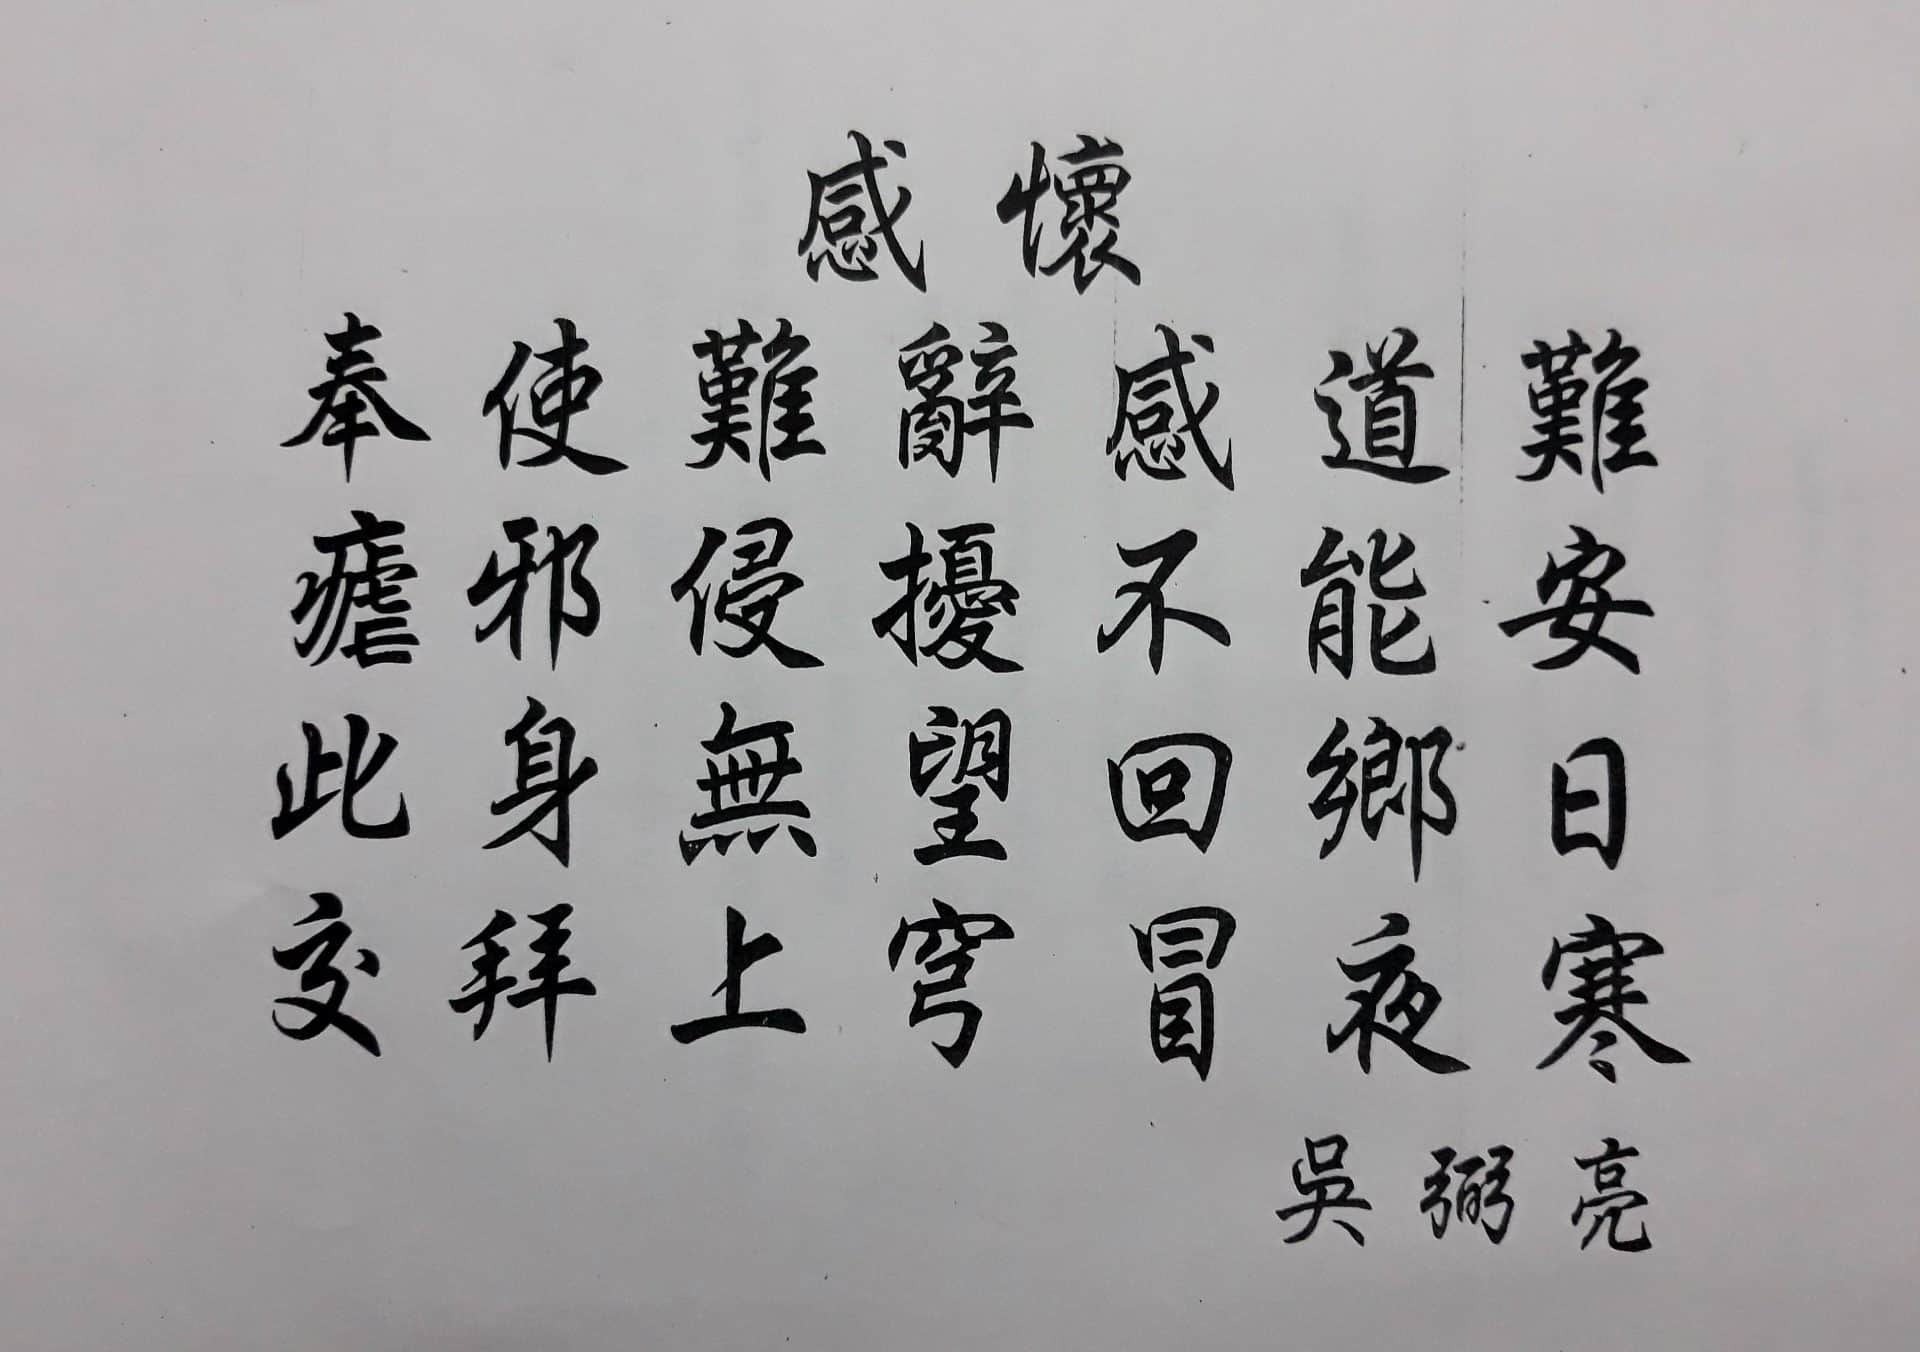 感懷
奉使難辭感道難
瘧邪侵擾不能安
此身無望回鄉日
交拜上穹冒夜寒
吳弼亮